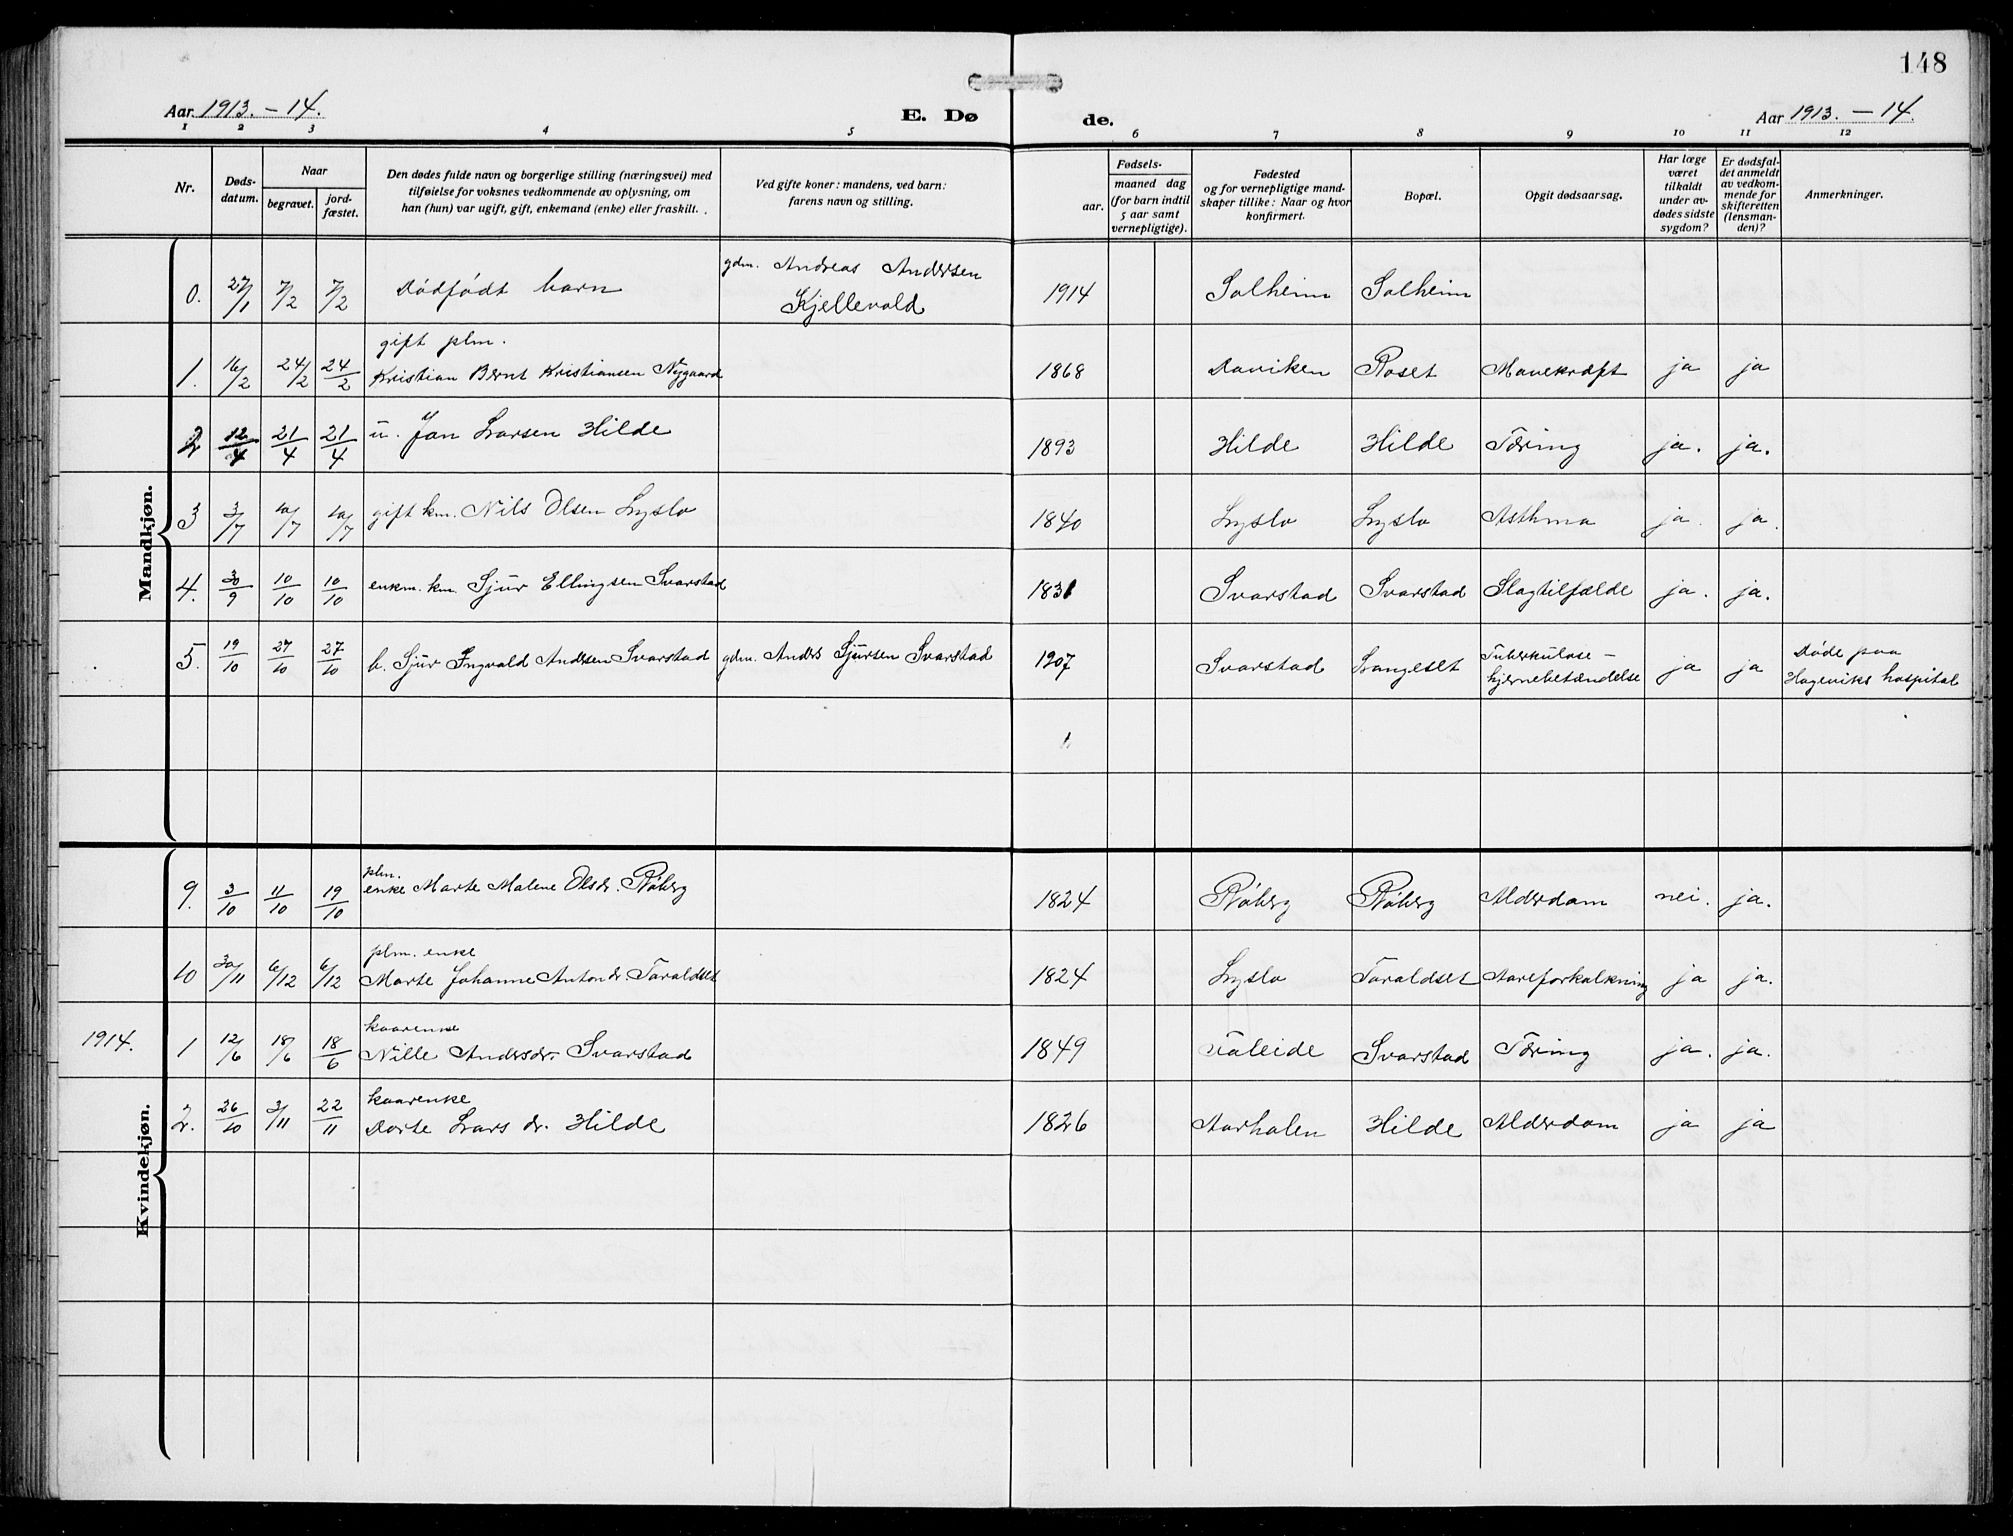 148
Aar 1913. - 14.
E. Dø
de.
Aar 1913. - 14.
1 2 3 4 5 6 7 8 9 10 11 12
Nr.
Døds-
datum.
Naar
begravet.
jord-
fæstet.
Den dødes fulde navn og borgerlige stilling (næringsvei) med
tilføielse for voksnes vedkommende av oplysning, om
han (hun) var ugift, gift, enkemand (enke) eller fraskilt.
Ved gifte koner: mandens, ved barn:
farens navn og stilling.
Fødsels-
aar.
maaned dag
(for barn indtil
5 aar samt
vernepligtige).
Fødested
og for vernepligtige mand-
skaper tillike: Naar og hvor
konfirmert.
Bopæl.
Opgit dødsaarsag.
Har læge
været
tilkaldt
under av-
dødes sidste
sygdom?
Er dødsfal-
det anmeldt
av vedkom-
mende for
skifteretten
(lensman-
den)?
Anmerkninger.
Mandkjøn.
gdm. Andreas Andersen
0. 27/1 7/2 7/2 Dødfødt barn Kjellevold 1914 Solheim Solheim
gift plm.
1. 16/2 24/2 24/2 Kristian Bernt Kristiansen Nygaard 1868 Daviken Roset Mavekræft ja ja
2 12/4 21/4 21/4 u. Jon Larsen Hilde 1893 Hilde Hilde Tæring ja. ja.
3 3/7 10/7 10/7 gift km. Nils Olsen Lyslo 1840 Lyslo Lyslo Asthma ja. ja.
4. 30/9 10/10 10/10 enkm. km. Sjur Ellingsen Svarstad 1831 Svarstad Svarstad Slagtilfælde ja. ja.
5. 19/10 27/10 27/10 b. Sjur Ingvald Andersen Svarstad gdm. Anders Sjursen Svarstad 1907 Svarstad Langeset Tuberkuløse-
hjernebetændelse ja ja Døde paa
Hageviks hospital
Kvindekjøn.
plm.
9. 3/10 11/10 19/10 enke Marte Malene Olsdr. Røberg 1824 Røberg Røberg Alderdom nei. ja.
plm. enke
10 30/11 6/12 6/12 Marte Johanne Antondr. Taraldset 1824 Lyslo Taraldset Aareforkalkning ja ja.
kaarenke
1914. 1 12/6 18/6 18/6 Nille Andersdr. Svarstad 1849 Faleide Svarstad Tæring ja. ja.
kaarenke
2. 26/10 3/11 22/11 Dorte Lars dr. Hilde 1826 Aarholen Hilde Alderdom ja ja